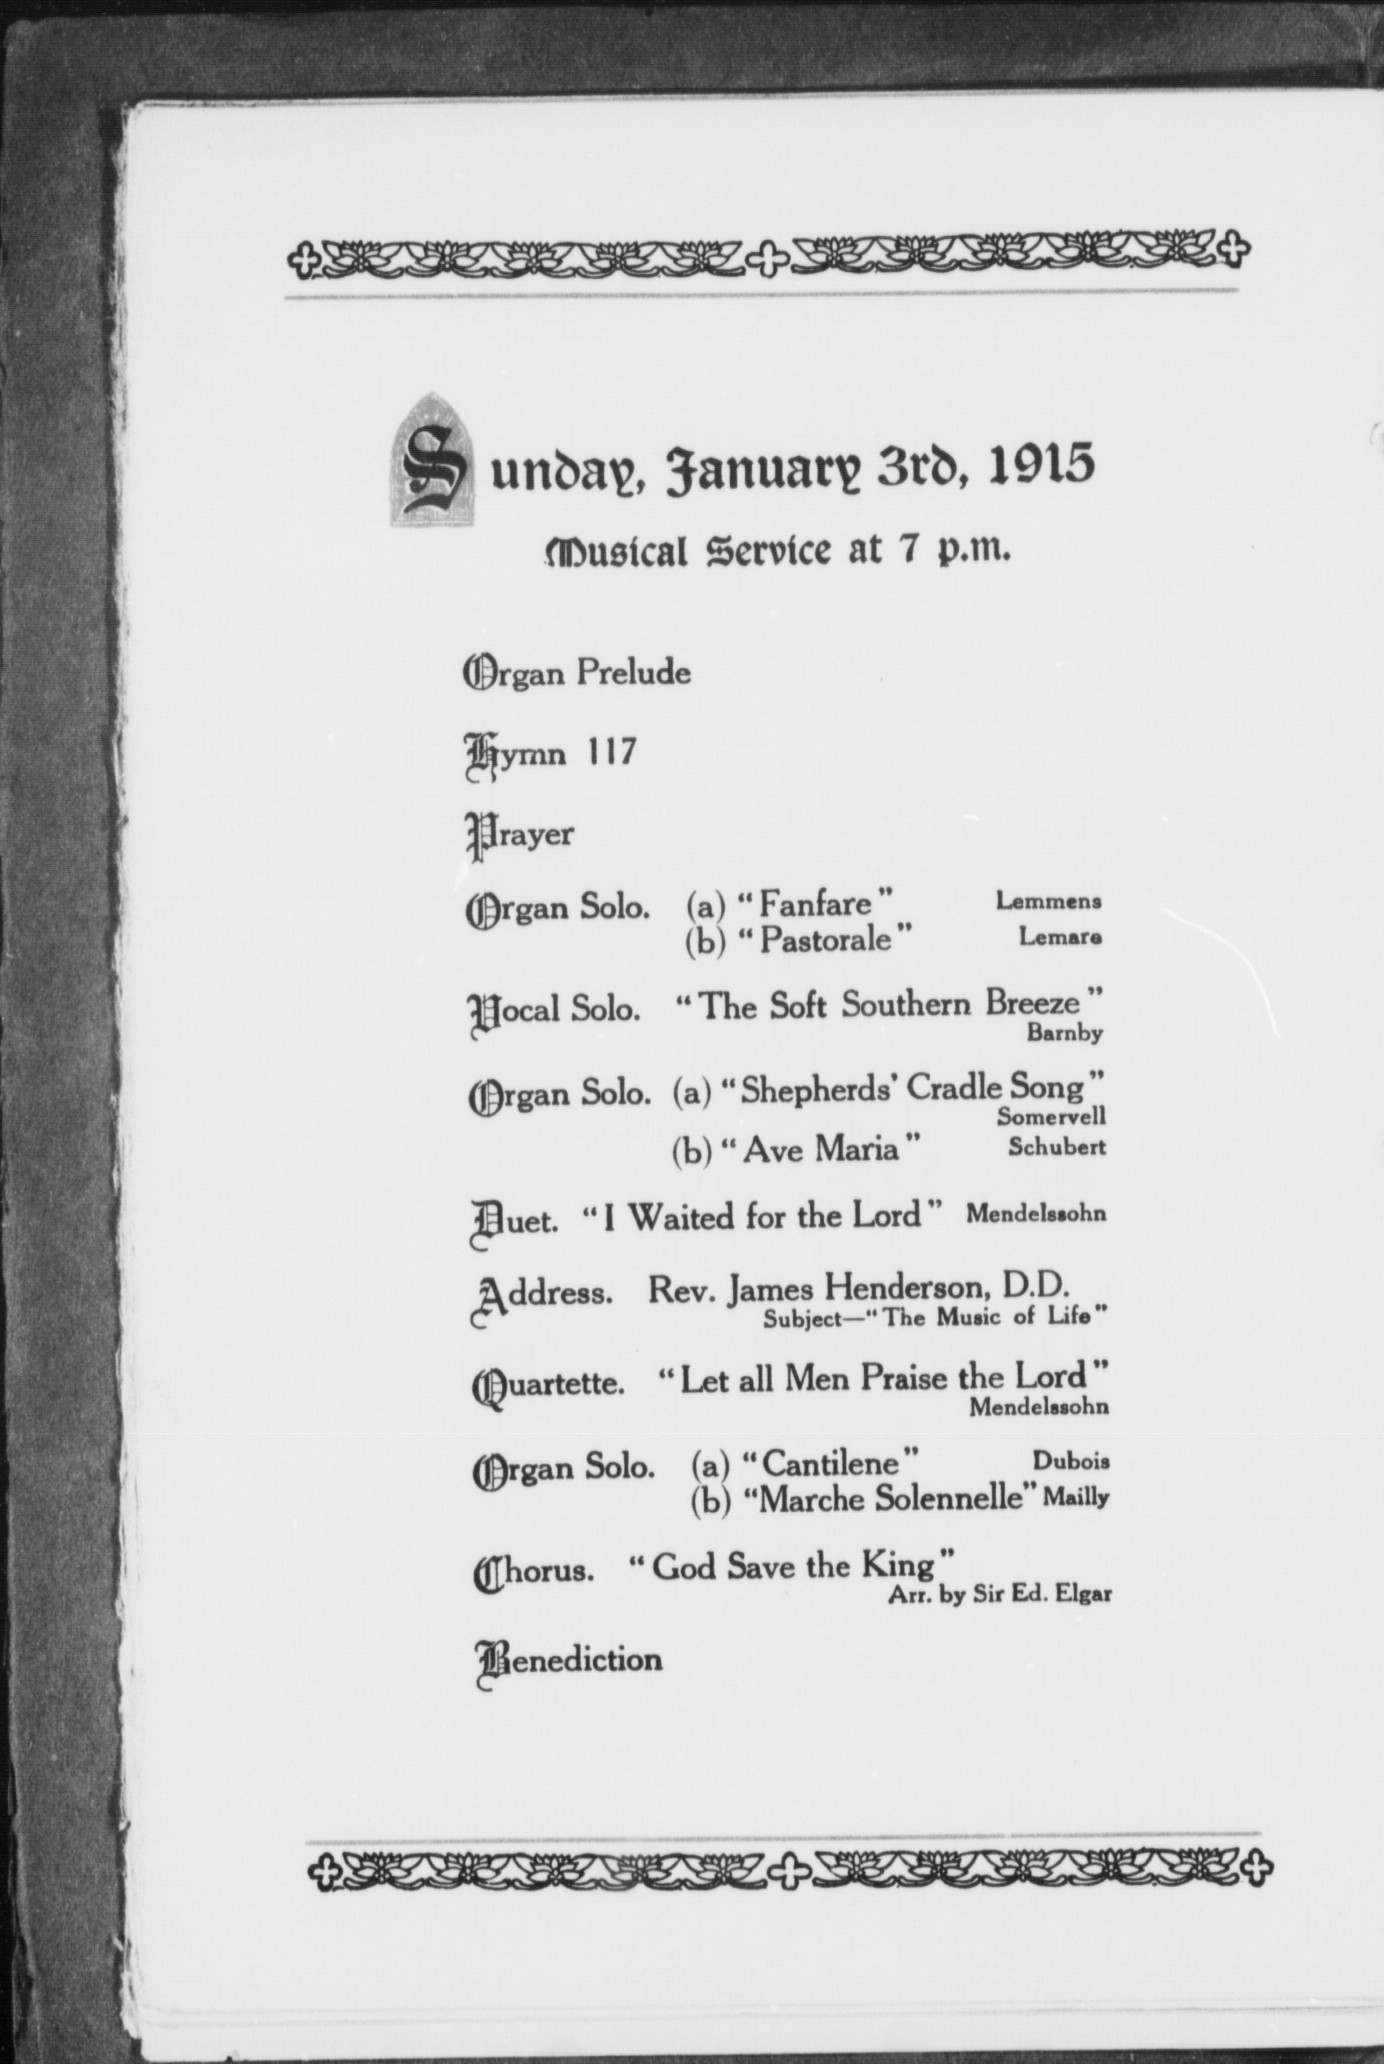 Sunday, January 3rd, 1915
Musical Service at 7 p.m.
Organ Prelude
Hymn 117
Prayer
Organ Solo. (a) “Fanfare” Lemmens
(b) “Pastorale” Lemare
Vocal Solo. “The Soft Southern Breeze”
Barnby
Organ Solo. (a) “Shepherds’ Cradle Song”
Somervell
(b) “Ave Maria” Schubert
Duet. “I Waited for the Lord” Mendelssohn
Address. Rev. James Henderson, D.D.
Subject—“The Music of Life”
Quartette. “Let all Men Praise the Lord”
Mendelssohn
Organ Solo. (a) “Cantilene” Dubois
(b) “Marche Solennelle” Mailly
Chorus. “God Save the King”
Arr. by Sir Ed. Elgar
Benediction